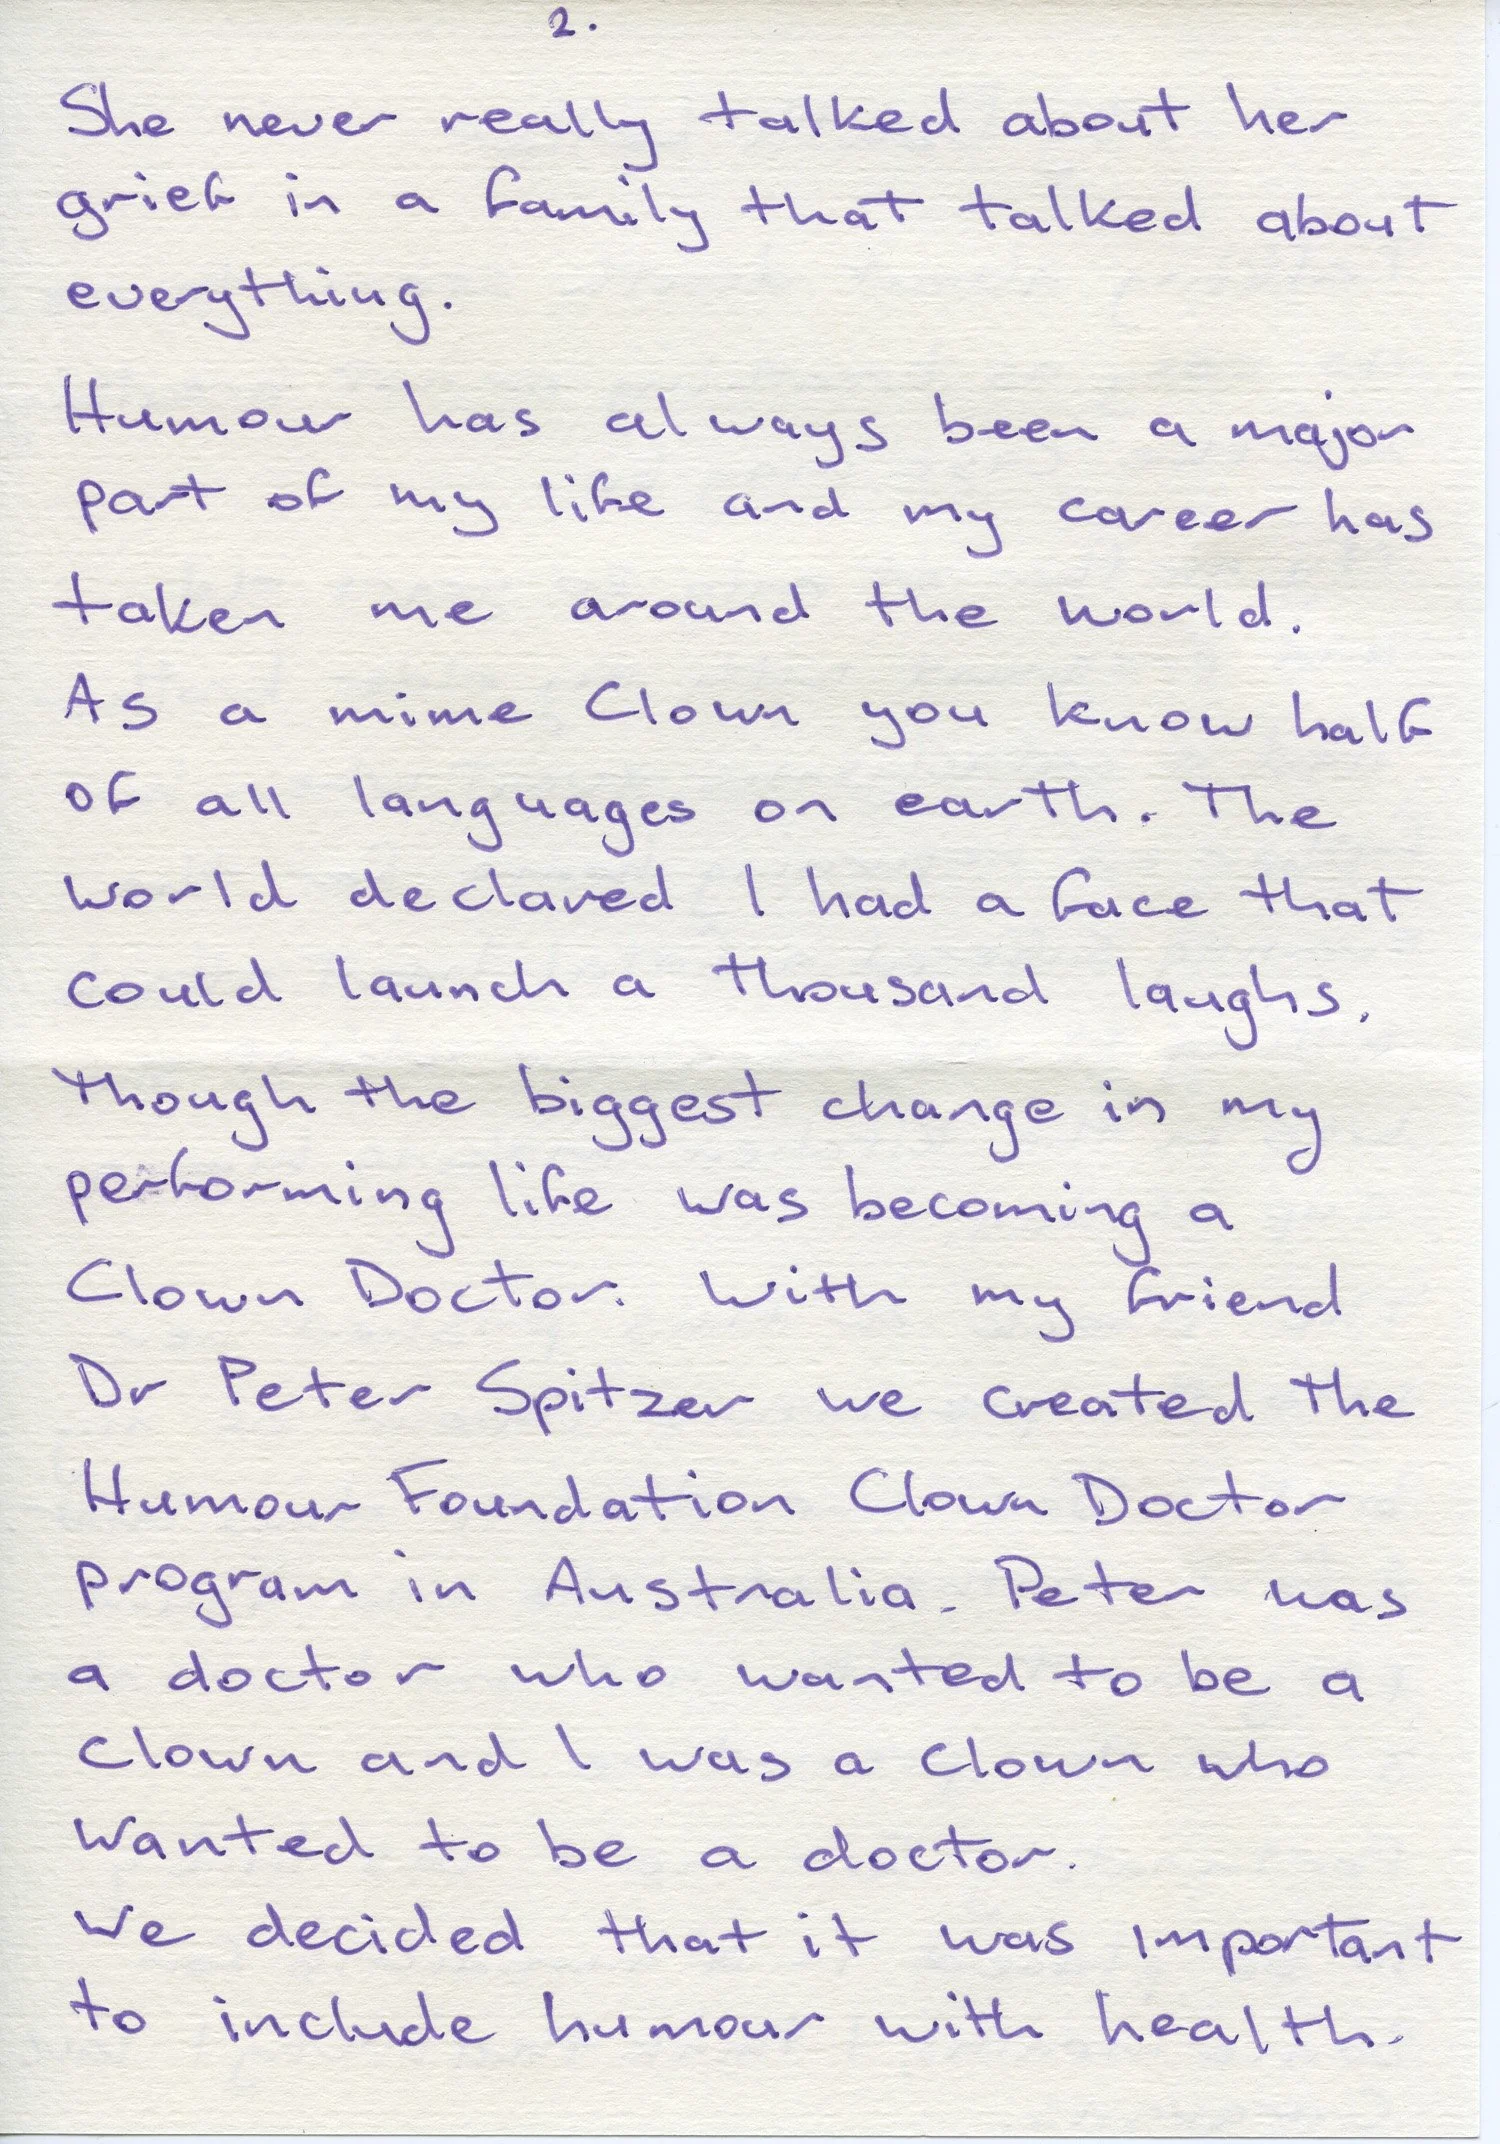 2.
She never really talked about her
grief in a family that talked about
everything.
Humour has always been a major
part of my life and my career has
taken me around the world.
As a mime Clown you know half
of all languages on earth. The
world declared I had a face that
could launch a thousand laughs.
Though the biggest change in my
performing life was becoming a
Clown Doctor. With my friend
Dr Peter Spitzer we created the
Humour Foundation Clown Doctor
program in Australia. Peter was
a doctor who wanted to be a
Clown and I was a Clown who
wanted to be a doctor.
We decided that it was important
to include humour with health.